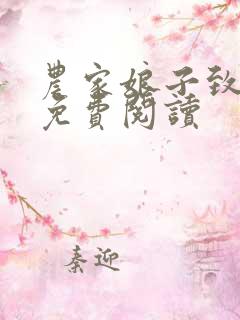 農家娘子致
免費閱讀
秦迎